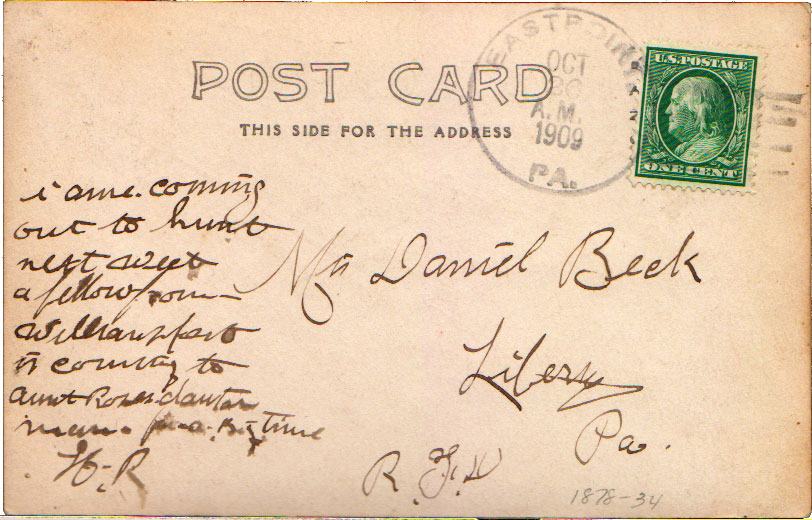 POST CARD
THIS SIDE FOR THE ADDRESS
EASTPOINT
OCT
A.M.
1909
PA.
U.S. POSTAGE
ONE CENT
i ame. coming
out to hunt
next week
a fellow from
Williamsport
is coming to
aunt Roses
for a Big time
H-R
Mr Daniel Beck
Liberty
Pa.
R.F.D
1878-34